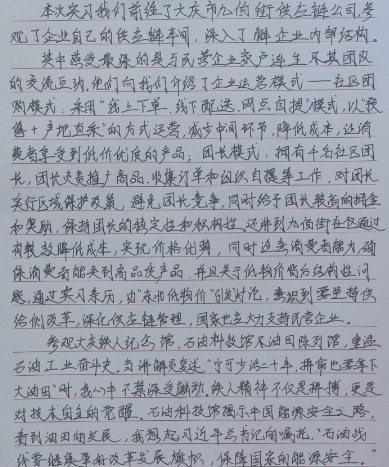 本次实习我们前往了大庆市九佰街供应链公司,参
观了企业自己的供应链车间,深入了解企业内部结构。
其中感受最深的是与民营企业家卢连生及其团队
的交流互动,他们向我们介绍了企业运营模式——社区团
购模式:采用"线上下单、线下配送、网点自提"模式,以"预
售+产地直采"的方式运营,减少中间环节,降低成本,让消
费者享受到低价优质的产品;团长模式:拥有千名社区团
长,团长负责推广商品、收集订单和组织自提等工作,对团长
实行区域保护政策,避免团长竞争,同时给予团长较高的佣金
和奖励,保持团长的稳定性和积极性,还讲到九佰街在区通过
有效降低成本,实现价格优势,同时返查消费者能力,确
保消费者能买到高品质产品,并且关于低物价背后结构性问
题,通过实习亲历,由"东北低物价"引发讨论,意识到要坚持供
给侧改革,深化供应链管理,国家也要大力支持民营企业。
参观大庆铁人纪念馆、石油科技馆及油田陈列馆,重温
石油工业奋斗史。当讲解员复述"宁可少活二十年,拼命也要拿下
大油田"时,我心中不禁深受触动。铁人精神不仅是拼搏,更是
对技术自主的觉醒。石油科技馆揭示中国能源安全之路,
看到油田的发展,我想起习近平总书记的嘱托:"石油战
线要继续举好改革发展旗帜,保障国家的能源安全。"